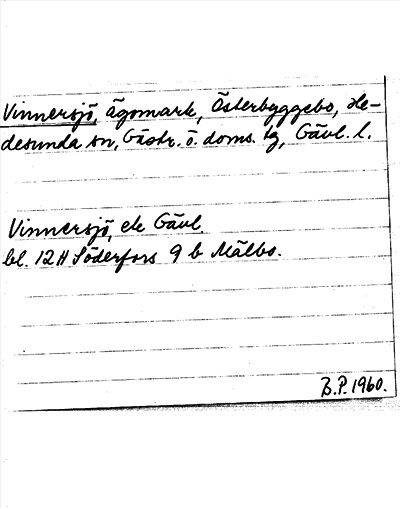 Vinnersjö, ägomark, Österbyggebo, He-
desunda sn, Gästr. ö. doms. tg, Gävl. l.
Vinnersjö, ek Gävl
bl. 12H Söderfors 9 b Mälbo.
B.P. 1960.